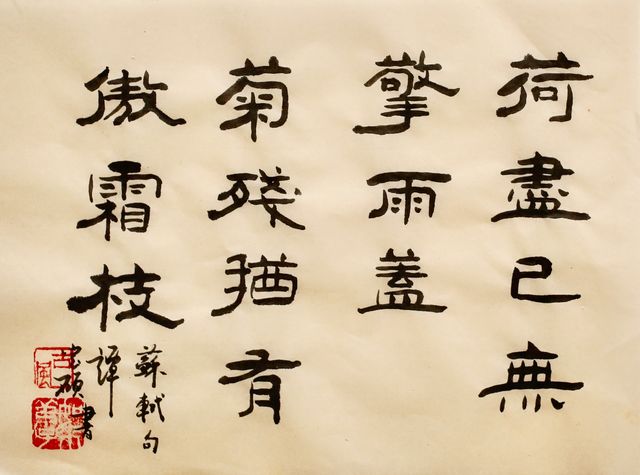 荷盡已無
擎雨蓋
菊殘猶有
傲霜枝
蘇軾句
譚
碩書
古風